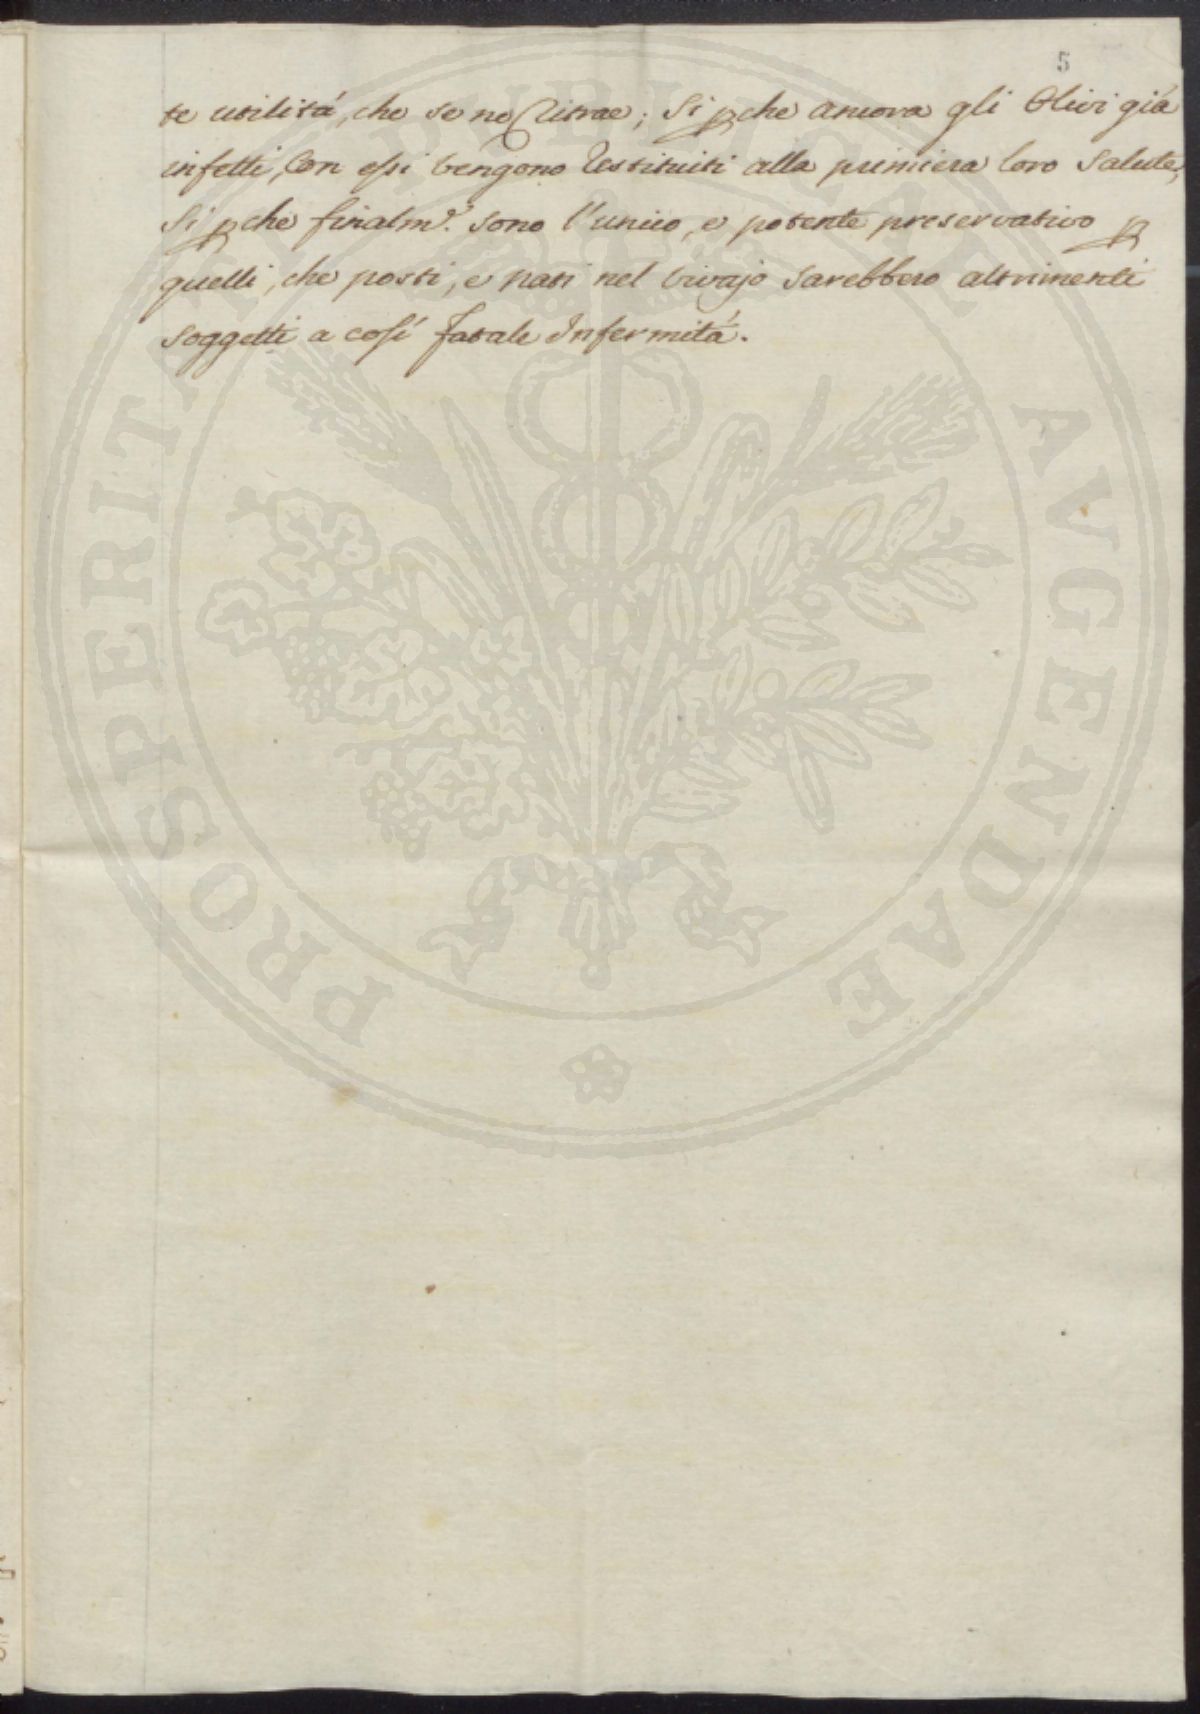 5
te utilitá, che se ne Ritrae; Si ꝑche ancora gli Olivi giá
infetti, Con essi vengono Restituiti alla primiera loro Salute,
Si ꝑche finalm.e sono l'unico, e potente preservativo ꝑ
quelli, che posti, e nati nel vivajo sarebbero altrimenti
soggetti a cosí fatale Infermitá.
PROSPERITATI PUBLICAE AVGENDAE